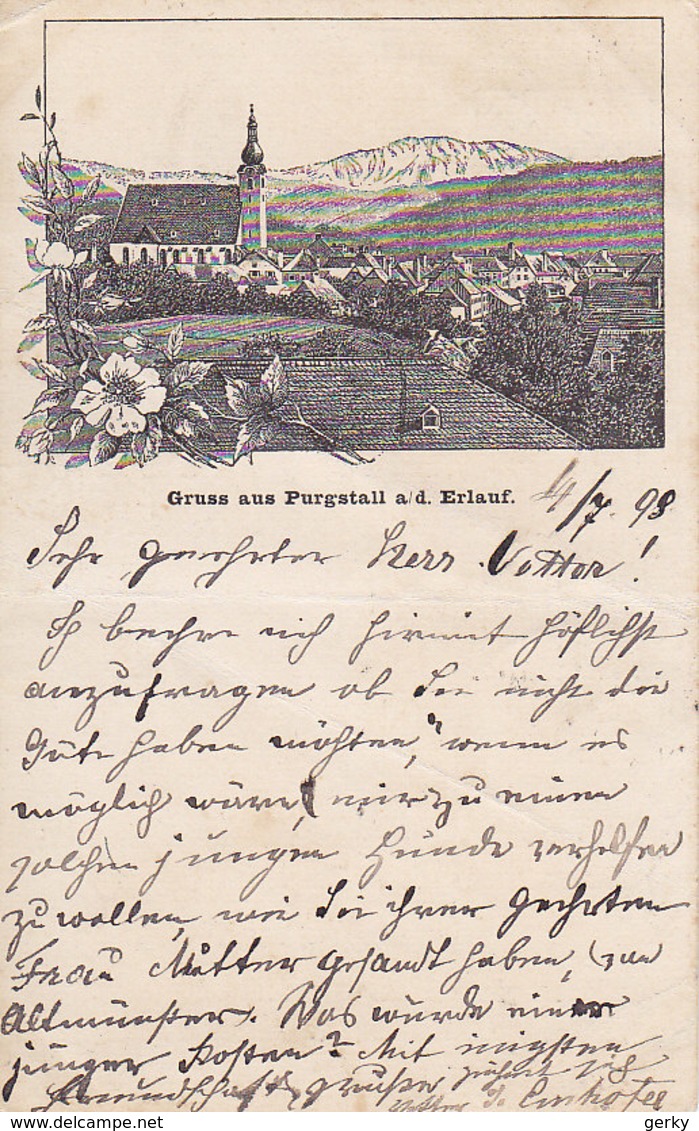 Gruss aus Purgstall a/d. Erlauf.
4/7. 98
Sehr geehrter Herr Vetter!
Ich beehre mich hirmit höflichst
anzufragen ob Sie nicht die
Güte haben möchten, wenn es
möglich wäre, mir zu einen
solchen jungen Hunde verhelfen
zu wollen, wie Sie ihrer geehrten
Frau Mutter gesandt haben,
Altmünster. Was würde einer
junger kosten? Mit
Freundschafts grüßen zeichnet sich
gerky